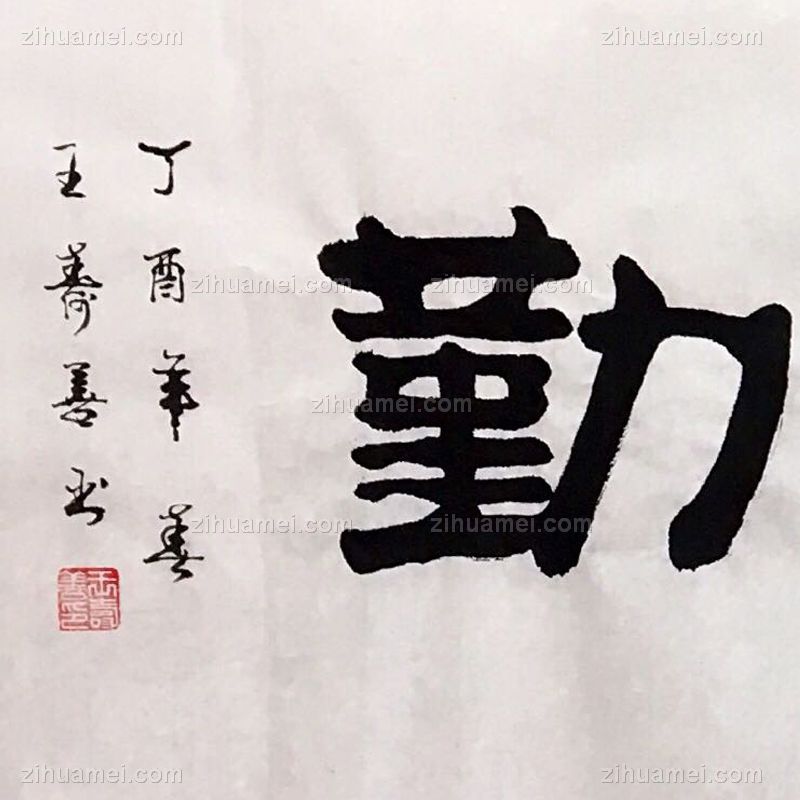 勤
丁酉年春
王寿善书
王壽善印
zihuamei.com
zihuamei.com
zihuamei.com
zihuamei.com
zihuamei.com
zihuamei.com
zihuamei.com
zihuamei.com
zihuamei.com
zihuamei.com